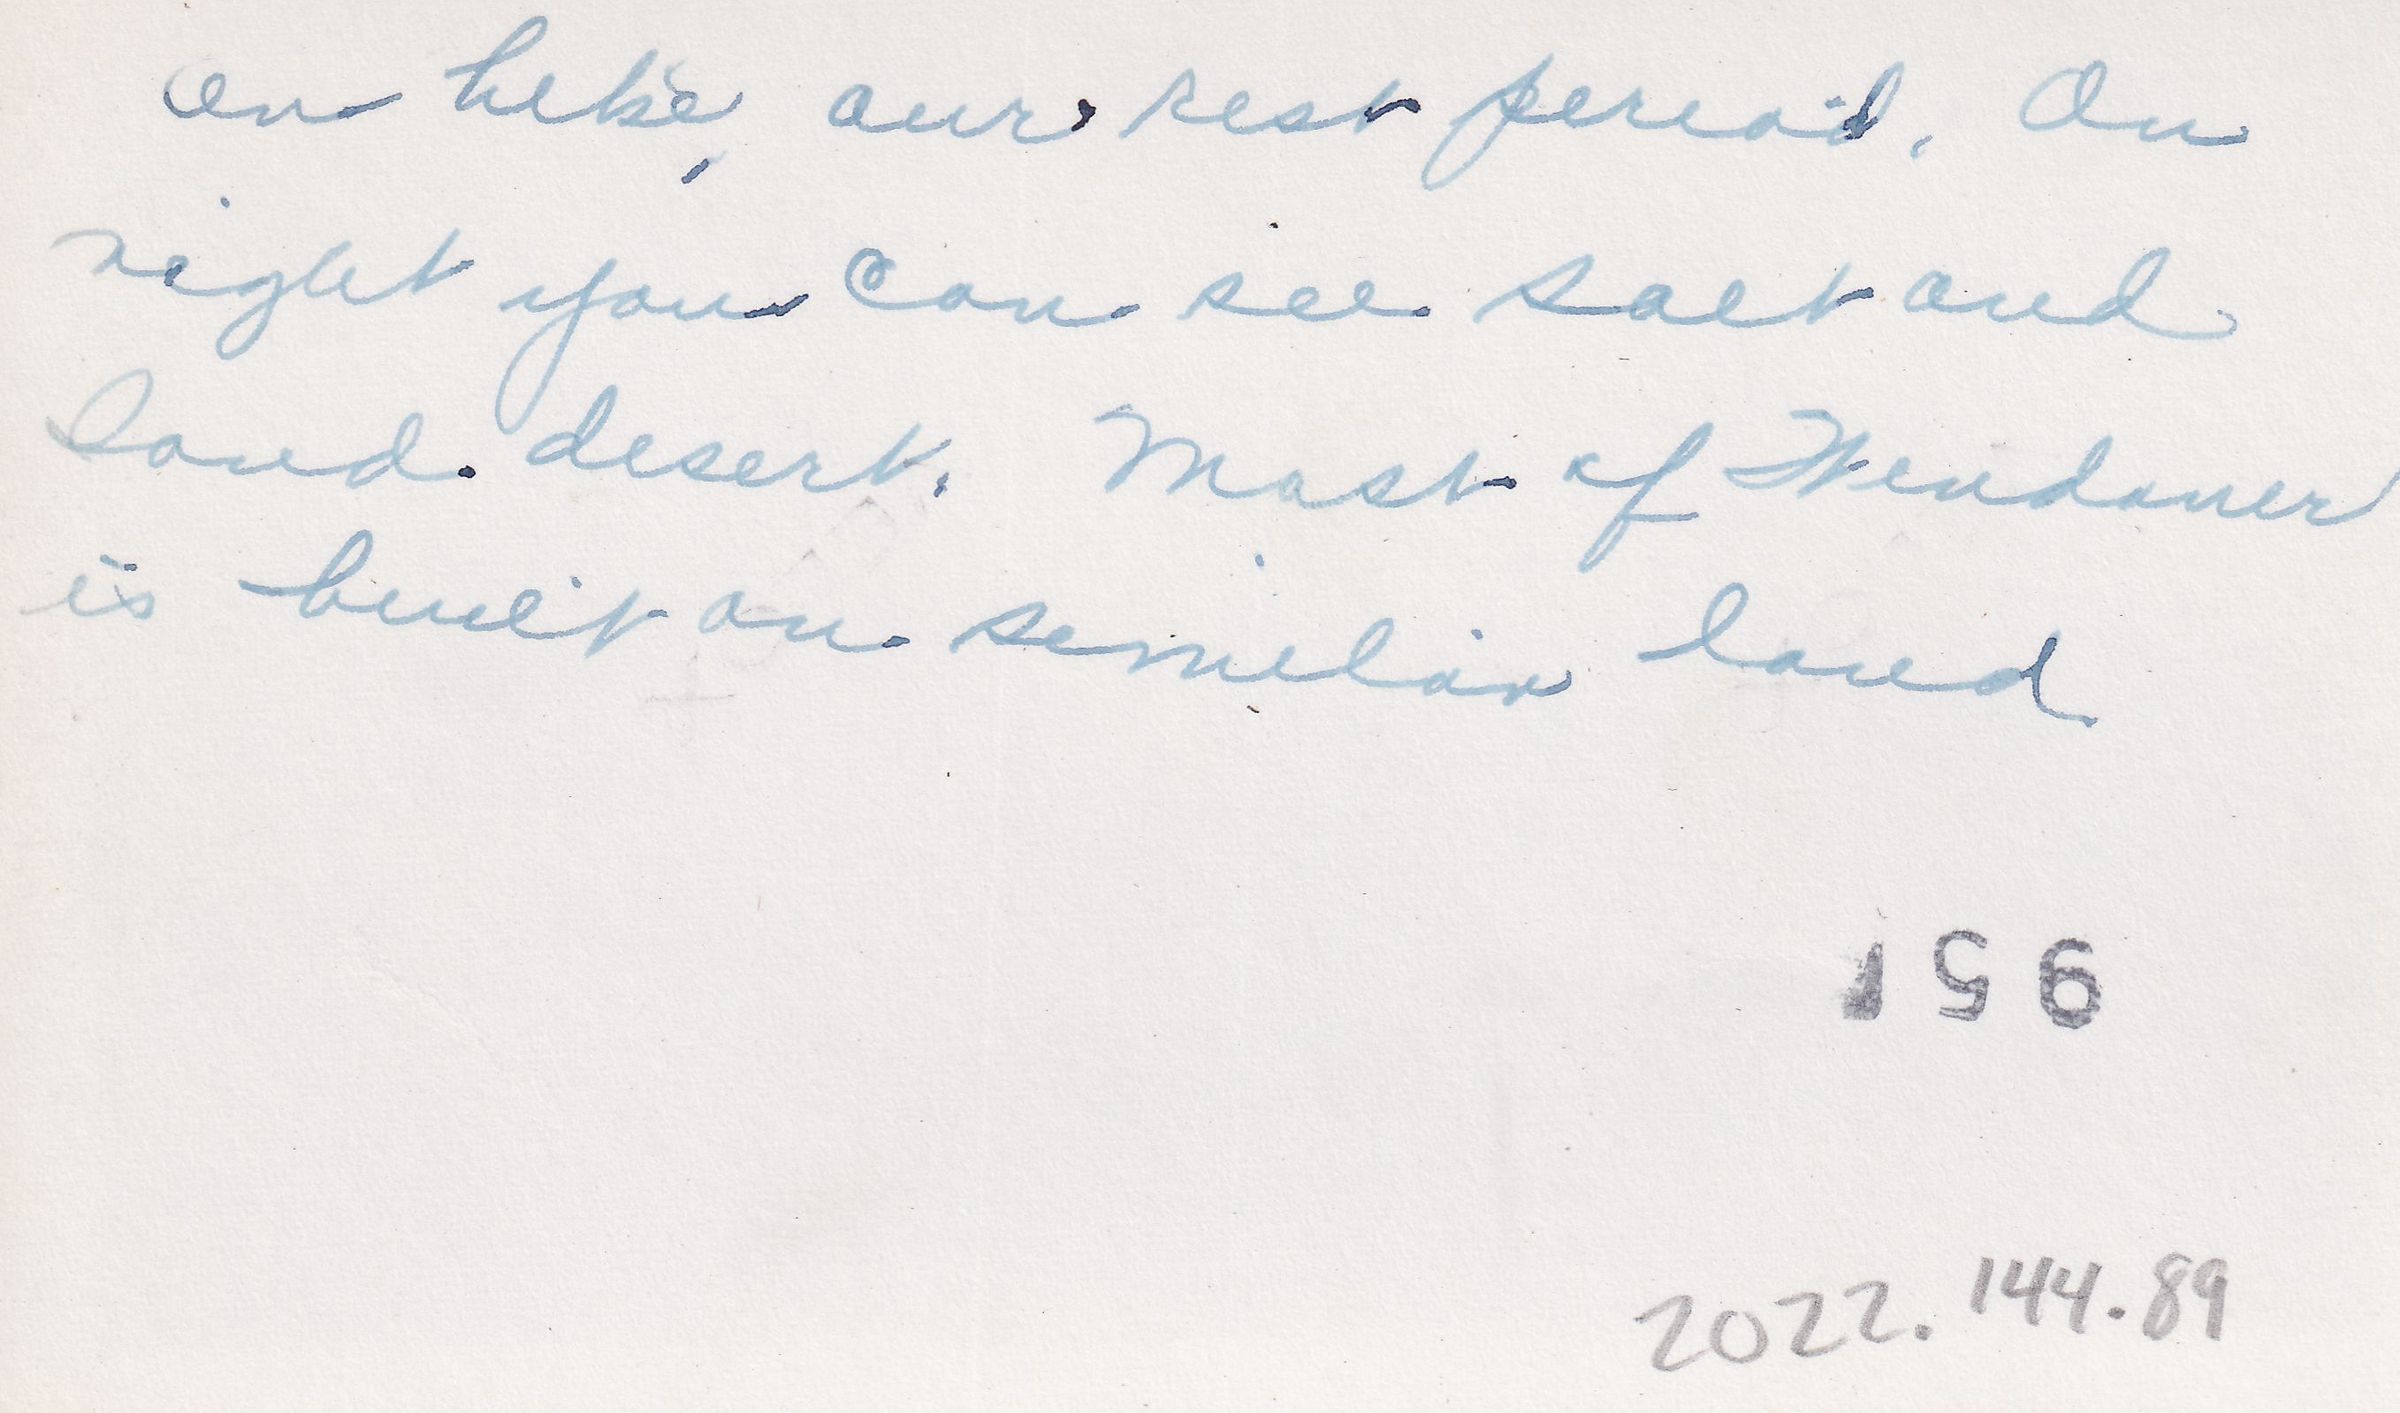 on hike, our rest period. On
right you can see salt and
land desert. Most of Wendover
is built on similar land
951
2022.144.89